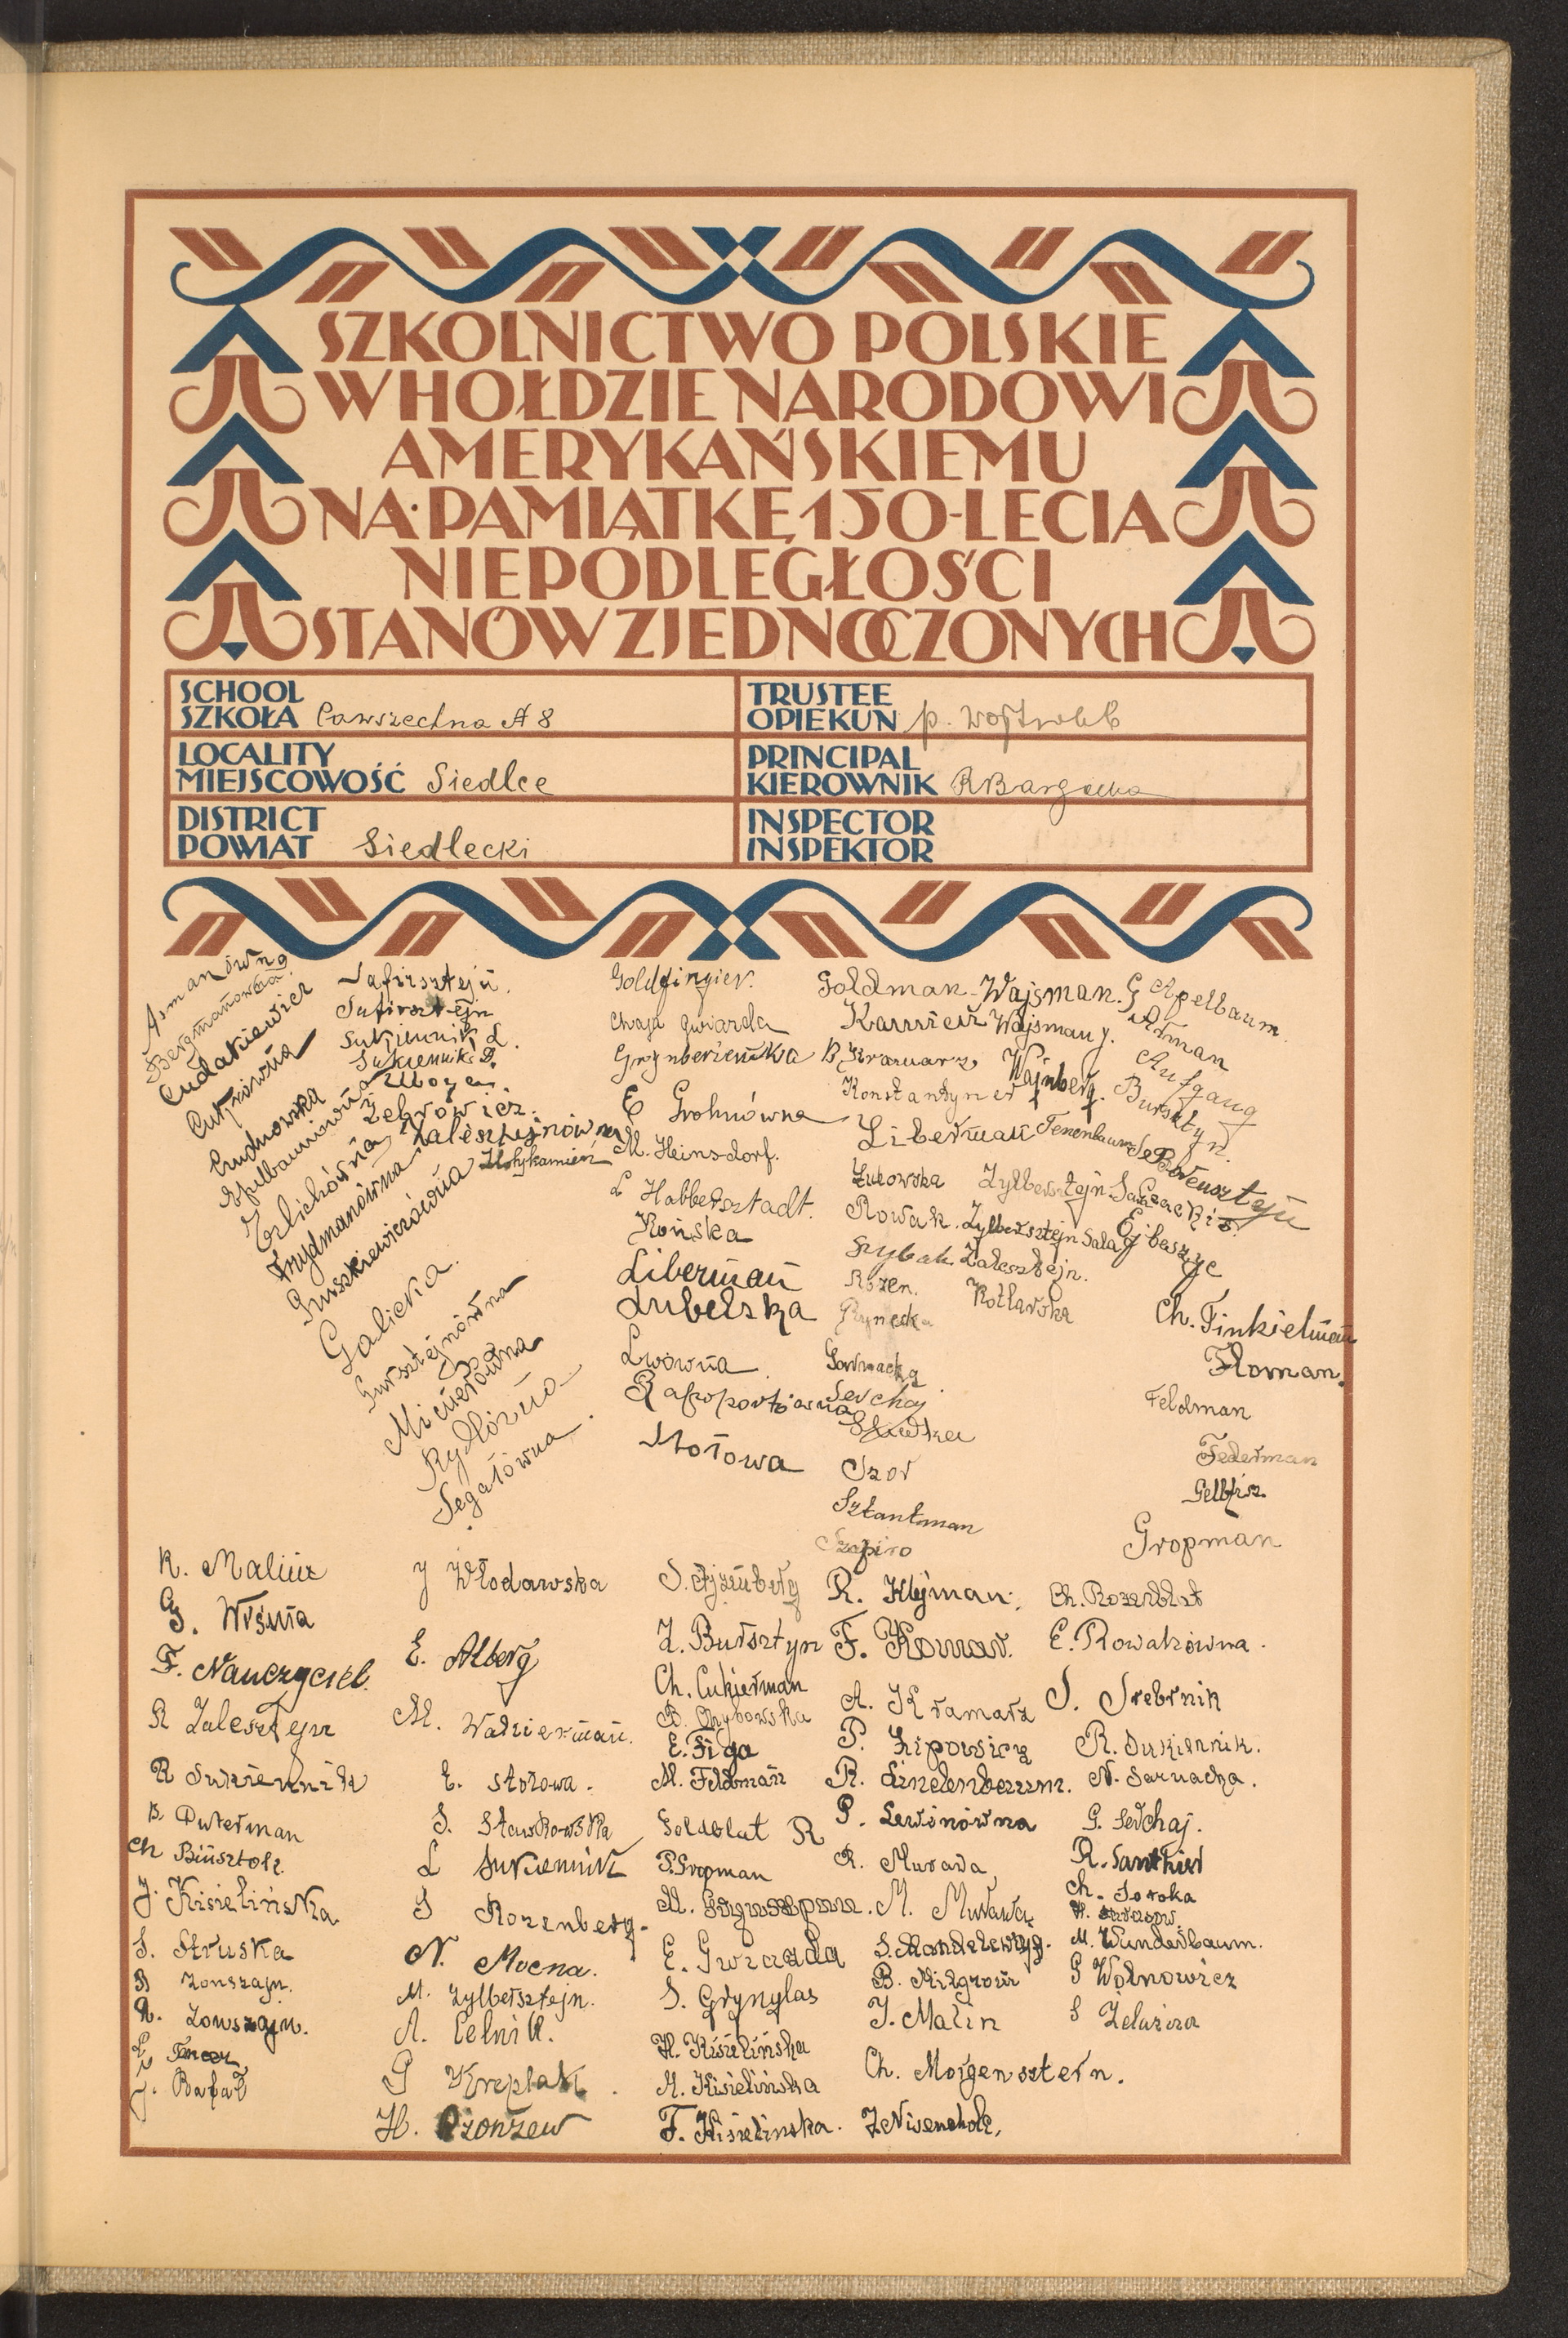 SZKOLNICTWO POLSKIE
W HOŁDZIE NARODOWI
AMERYKAŃSKIEMU
NA·PAMIĄTKĘ 150-LECIA
NIEPODLEGŁOŚCI
STANÓW ZJEDNOCZONYCH
SCHOOL
SZKOŁA Powszechna № 8
TRUSTEE
OPIEKUN p.
LOCALITY
MIEJSCOWOŚĆ Siedlce
PRINCIPAL
KIEROWNIK
DISTRICT
POWIAT Siedlecki
INSPECTOR
INSPEKTOR
Asmanówna
Bergmanówna
Cudakiewicz
Cukrówna
Cudnowska
Szpilbaumówna
Erlichówna
Frydmanówna
Gurszkiewiczówna
Galicka.
Gursztejnówna
Micnerówna
Rydlówna
Segałówna
Szafirsztejn.
Szafirsztejn
Sukjennik L.
Sukiennik D.
Ubogen.
Zebrowicz.
Zalesztejnówna
Złotykamień
Goldfingier.
Chaja Gwiazda
Grynberżanka
E Grohnówna
M. Heinsdorf.
L Halbersztadt.
Końska
Liberman
Lubelska
Lwówna
Rafoportówna
Stołowa
Goldman
Kamień
B. Kramarz
Konstantyner
Liberman
Żukowska
Nowak.
Rybak
Rozen.
Rynecka
Sarnacka
Serchaj
Śliwka
Szor
Sztantman
Szapiro
Wajsman. G
Wajsman J.
Wajnberg.
Tenenbaum
Zylbersztejn Sara
Zylbersztejn Sala
Zalesztejn.
Kotlarska
Apelbaum
Atman
Aufgang
Bursztyn.
Borensztejn
Czacki S.
Ejbeszyc
Ch. Finkielman
Floman.
Feldman
Federman
Gelbfisz.
Gropman
R. Malin
G. Wiśnia
F. Nauczyciel.
R Zalesztejn
R Sukiennik
B. Duterman
Ch Binsztok.
J. Kisielińska
S. Struska
B Zonszajn.
R. Zonszajn.
J. Rafał
J Włodawska
E. Alberg
M. Walzierman.
E. Stołowa.
S. Stawkowska
L Sukiennik
S Rozenberg.
N. Mocna.
M. Zylbersztejn.
A. Celnik.
G Kreplak.
H. Rzonżew
S. Ajzenberg
Z. Bursztyn
Ch. Cukierman
B. Chybowska
E. Figa
M. Feldman
Goldblat R
P. Gropman
E. Gwiazda
S. Grynglas
H. Kisielińska
M. Kisielińska
F. Kisielinska.
R. Klejman.
F. Komar.
A. Kramarz
P. Lipowicz
R. Lindenbaum.
P. Lewinówna
R. Murawa
M. Murawa
S. Mandelcwajg.
B. Milgrom
J. Malin
Ch. Morgensztern.
Z. Nisenholc.
Ch. Rozenblat
E. Nowakówna.
S. Srebrnik
R. Sukiennik.
N. Sarnacka.
G. Serchaj.
R. Santkier
Ch. Soroka
M. Wunderbaum.
P Wołnowicz
S Żelazna